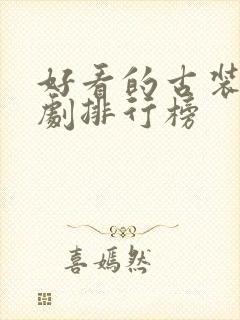 好看的古装
劇排行榜
喜嫣然